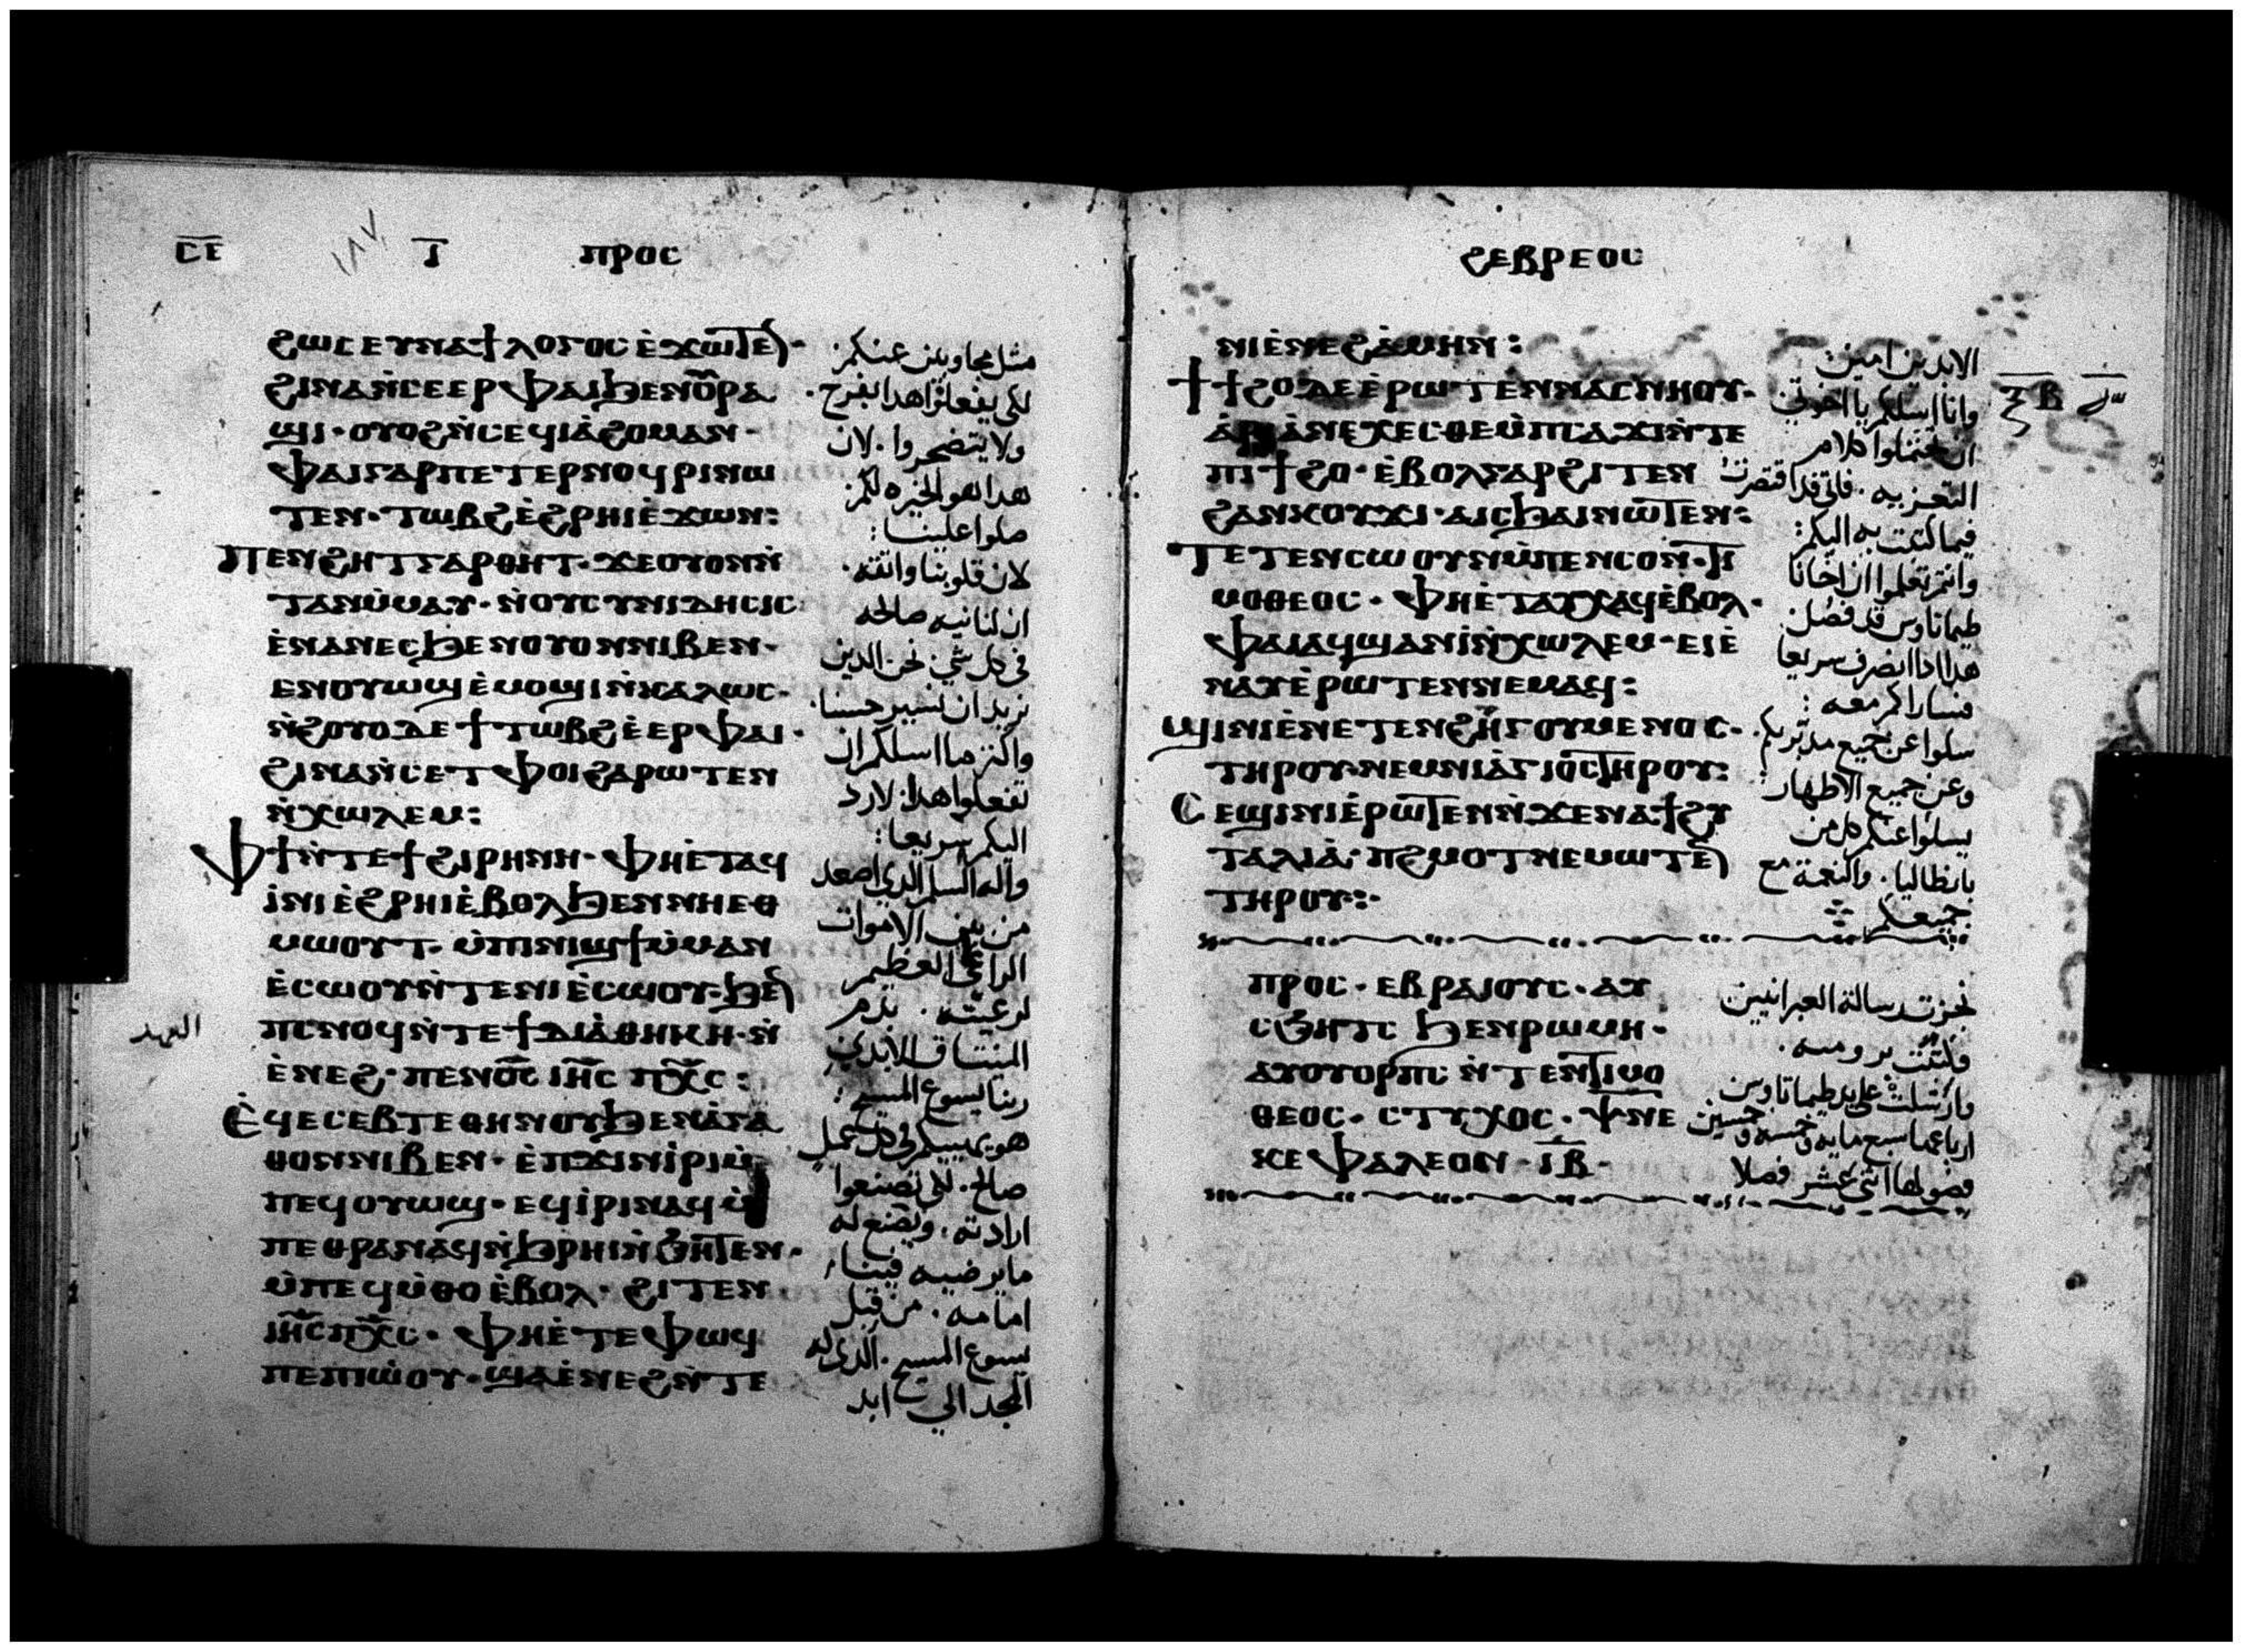 ⲤⲈ Ⲓ ⲠⲢⲞⲤ
ϩⲱⲥ ⲉⲩⲛⲁϯⲗⲟⲅⲟⲥ ⲉ̀ϫⲱⲧⲉⲛ·
ϩⲓⲛⲁ ⲛ̀ⲥⲉⲉⲣ ⲫⲁⲓ ϧⲉⲛ ⲟⲩⲣⲁ
ϣⲓ· ⲟⲩⲟϩ ⲛ̀ⲥⲉϥⲓⲁ̀ϩⲟⲙ ⲁⲛ·
ⲫⲁⲓ ⲅⲁⲣ ⲡⲉⲧⲉⲣⲛⲟϥⲣⲓ ⲛⲱ
ⲧⲉⲛ· ⲧⲱⲃϩ ⲉ̀ϩⲣⲏⲓ ⲉ̀ϫⲱⲛ:
ⲡⲉⲛϩⲏⲧ ⲅⲁⲣ ⲑⲏⲧ· ϫⲉ ⲟⲩⲟⲛ ⲛ̀
ⲧⲁⲛ ⲙ̀ⲙⲁⲩ· ⲛ̀ⲟⲩⲥⲩⲛⲓⲇⲏⲥⲓⲥ
ⲉ̀ⲛⲁⲛⲉⲥ ϧⲉⲛ ⲟⲩⲟⲛ ⲛⲓⲃⲉⲛ·
ⲉⲛⲟⲩⲱϣ ⲉ̀ⲙⲟϣⲓ ⲛ̀ⲕⲁⲗⲱⲥ·
ⲛ̀ϩⲟⲩⲟ ⲇⲉ ϯⲧⲱⲃϩ ⲉ̀ⲉⲣ ⲫⲁⲓ·
ϩⲓⲛⲁ ⲛ̀ⲥⲉⲧⲫⲟⲓ ϩⲁⲣⲱⲧⲉⲛ
ⲛ̀ⲭⲱⲗⲉⲙ:
ⲫϯ ⲛ̀ⲧⲉ ϯϩⲓⲣⲏⲛⲏ· ⲫⲏⲉ̀ⲧⲁϥ
ⲓ̀ⲛⲓ ⲉ̀ϩⲣⲏⲓ ⲉ̀ⲃⲟⲗ ϧⲉⲛ ⲛⲏⲉⲑ
ⲙⲱⲟⲩⲧ· ⲙ̀ⲡⲓⲛⲓϣϯ ⲙ̀ⲙⲁⲛ
ⲉ̀ⲥⲱⲟⲩ ⲛ̀ⲧⲉ ⲛⲓⲉ̀ⲥⲱⲟⲩ· ϧⲉⲛ
ⲡⲥⲛⲟϥ ⲛ̀ⲧⲉ ϯⲇⲓⲁ̀ⲑⲏⲕⲏ· ⲛ̀
العهد
ⲉ̀ⲛⲉϩ· ⲡⲉⲛⲟ̅ⲥ̅ ⲓⲏ̅ⲥ̅ ⲡⲭ̅ⲥ̅:
ⲉ̀ϥⲉⲥⲉⲃⲧⲉ ⲑⲏⲛⲟⲩ ϧⲉⲛ ⲁ̀ⲅⲁ
ⲑⲟⲛ ⲛⲓⲃⲉⲛ· ⲉ̀ⲡϫⲓⲛⲓ̀ⲣⲓ ⲙ̀
ⲡⲉϥⲟⲩⲱϣ· ⲉϥⲓ̀ⲣⲓ ⲛⲁϥ ⲙ̀
ⲡⲉⲑⲣⲁⲛⲁϥ ⲛ̀ϧⲣⲏⲓ ⲛ̀ϧⲏⲧⲉⲛ·
ⲙ̀ⲡⲉϥⲙ̀ⲑⲟ ⲉ̀ⲃⲟⲗ· ϩⲓⲧⲉⲛ
ⲓⲏ̅ⲥ̅ ⲡⲭ̅ⲥ̅· ⲫⲏⲉ̀ⲧⲉ ⲫⲱϥ
ⲡⲉ ⲡⲓⲱ̀ⲟⲩ· ϣⲁ ⲉ̀ⲛⲉϩ ⲛ̀ⲧⲉ
مثل محاوبين عنكم·
لكي يفعلوا هدا بفرح·
ولا يتضجروا· لان
هدا هو الخيره لكم·
صلوا علينا:
لان قلوبنا واثقه·
ان لنا نيه صالحه
في كل شي· نحن الدين
نريد ان نسير حسنا·
واكتر ما اسلكم ان
تفعلوا هدا· لارد
اليكم سريعا:
واله السلم الدي اصعد
من بين الاموات
الراعي العظيم
لرعيته· بدم
الميتاق الابدي
ربنا يسوع المسيح:
هو يهييكم في كل عمل
صالح· لكي تصنعوا
ارادته· ويصنع له
ما يرضيه فينا·
امامه· من قبل
يسوع المسيح· الدي له
المجد الي ابد
ϩⲉⲃⲣⲉⲟⲥ
ⲛⲓⲉ̀ⲛⲉϩ ⲁ̀ⲙⲏⲛ:
ϯϯϩⲟ ⲇⲉ ⲉ̀ⲣⲱⲧⲉⲛ ⲛⲁⲥⲛⲏⲟⲩ·
ⲁ̀ⲣⲓⲁ̀ⲛⲉⲭⲉⲥⲑⲉ ⲙ̀ⲡⲥⲁϫⲓ ⲛ̀ⲧⲉ
ⲡⲓϯϩⲟ· ⲉ̀ⲃⲟⲗ ⲅⲁⲣ ϩⲓⲧⲉⲛ
ϩⲁⲛⲕⲟⲩϫⲓ· ⲁⲓⲥϧⲁⲓ ⲛⲱⲧⲉⲛ:
ⲧⲉⲧⲉⲛⲥⲱⲟⲩⲛ ⲙ̀ⲡⲉⲛⲥⲟⲛ· ⲧⲓ
ⲙⲟⲑⲉⲟⲥ· ⲫⲏⲉ̀ⲧⲁⲩⲭⲁϥ ⲉ̀ⲃⲟⲗ·
ⲫⲁⲓ ⲁϥϣⲁⲛⲓ̀ ⲛ̀ⲭⲱⲗⲉⲙ· ⲉⲓⲉ̀
ⲛⲁⲩ ⲉ̀ⲣⲱⲧⲉⲛ ⲛⲉⲙⲁϥ:
ϣⲓⲛⲓ ⲉ̀ⲛⲉⲧⲉⲛϩⲏⲅⲟⲩⲙⲉⲛⲟⲥ·
ⲧⲏⲣⲟⲩ· ⲛⲉⲙ ⲛⲓⲁ̀ⲅⲓⲟⲥ ⲧⲏⲣⲟⲩ:
ⲥⲉϣⲓⲛⲓ ⲉ̀ⲣⲱⲧⲉⲛ ⲛ̀ϫⲉ ⲛⲁ ϯϩⲩ
ⲧⲁⲗⲓⲁ̀· ⲡϩⲙⲟⲧ ⲛⲉⲙⲱⲧⲉⲛ
ⲧⲏⲣⲟⲩ:·
الابدين امين:
وانا اسلكم يا اخوتي
ان تحتملوا كلام
التعزيه· فاني قد اقتصرت
فيما كتبت به اليكم:
وانتم تعلموا ان اخانا
طيماتاوس قد فصل·
هدا ادا انصرف سريعا
فساراكم معه:
سلوا عن جميع مدبريكم·
وعن جميع الاطهار:
يسلوا عنكم كل من
بانطاليا· والنعمة مع
جميعكم
ⲡⲣⲟⲥ· ⲉⲃⲣⲁⲓⲟⲩⲥ· ⲁⲩ
ⲥϧⲏⲧⲥ ϧⲉⲛ ⲣⲱⲙⲏ·
ⲁⲩⲟⲩⲟⲣⲡⲥ ⲛ̀ⲧⲉⲛ ⲧⲓⲙⲟ
ⲑⲉⲟⲥ· ⲥⲧⲩⲭⲟⲥ· ⲯⲛⲉ
ⲕⲉⲫⲁⲗⲉⲟⲛ· ⲓⲃ·
نجزت رسالة العبرانيين
وكتبت برومية·
وارسلت على يد طيماتاوس
ارباعها سبع مايه وخمسه وخمسين
فصولها اتني عشر فصلا